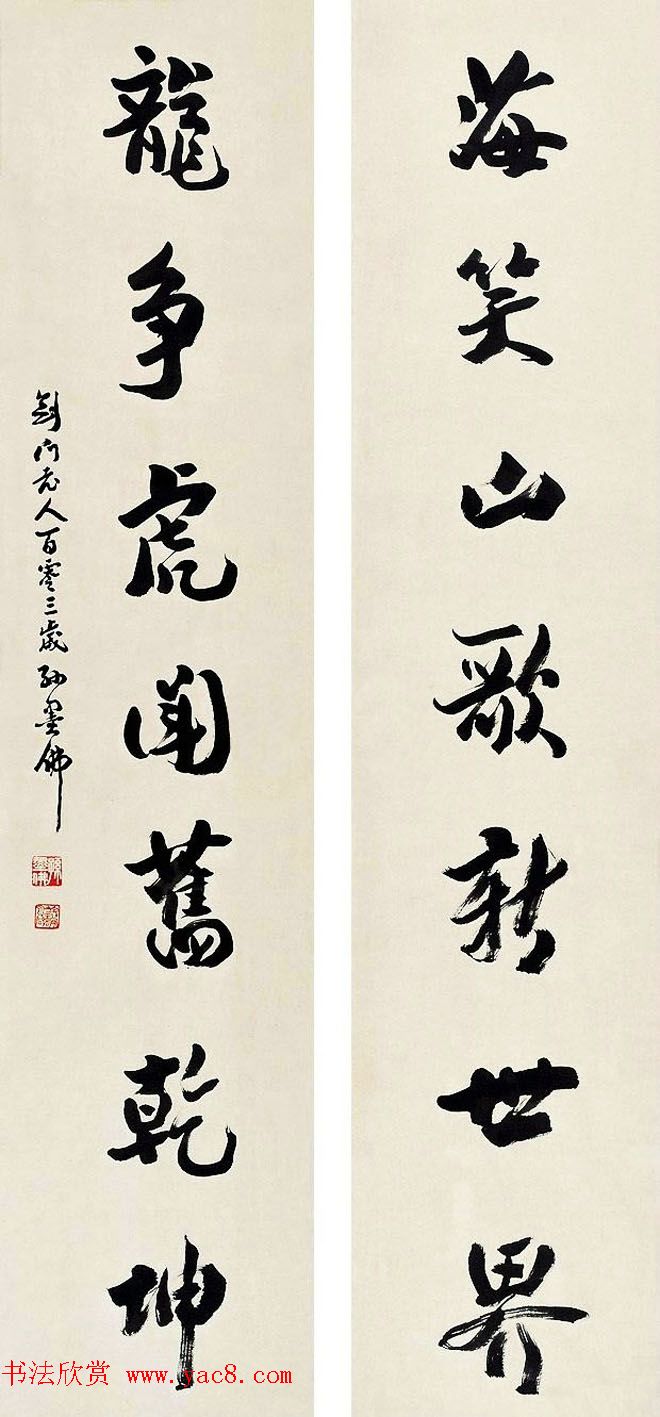 海笑山歌新世界
龍争虎鬥舊乾坤
劍門老人百零三歲孙墨佛
书法欣赏 www.yac8.com